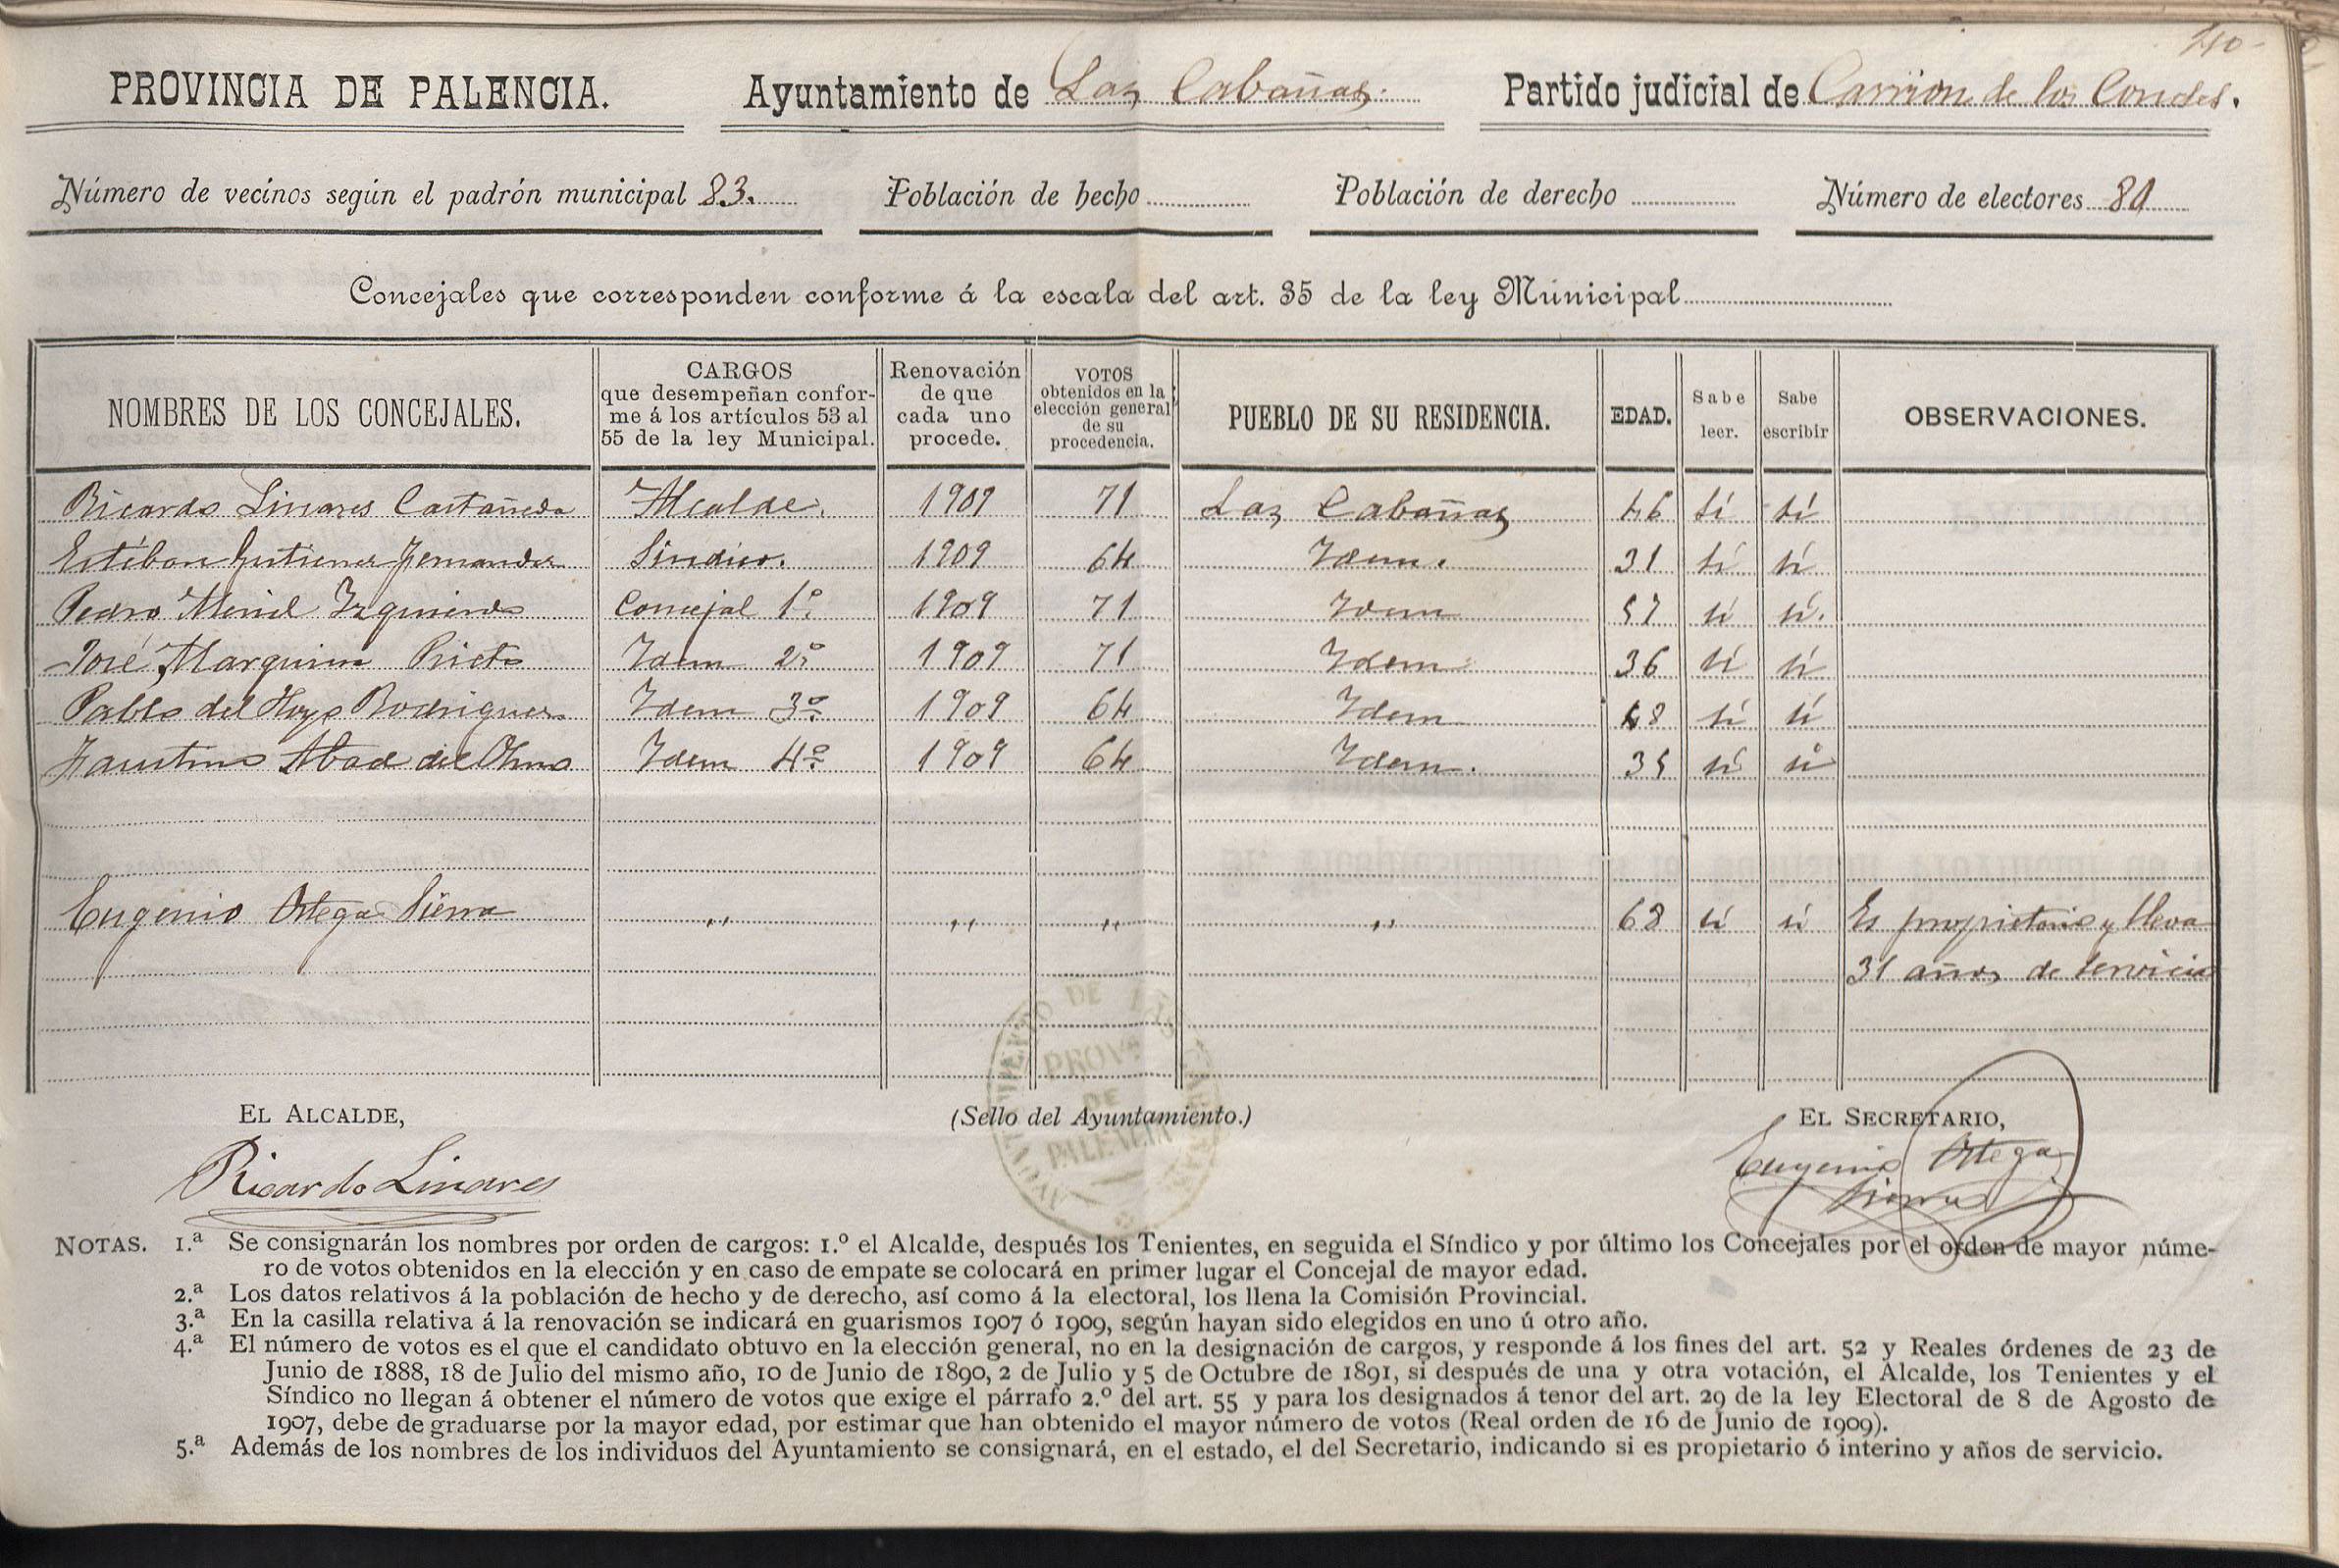 40
PROVINCIA DE PALENCIA. Ayuntamiento de Las Cabañas. Partido judicial de Carrión de los Condes.
Número de vecinos según el padrón municipal 83. Población de hecho Población de derecho Número de electores 81
Concejales que corresponden conforme á la escala del art. 35 de la ley Municipal
NOMBRES DE LOS CONCEJALES. CARGOS que desempeñan conforme á los artículos 53 al 55 de la ley Municipal. Renovación de que cada uno procede. VOTOS obtenidos en la elección general de su procedencia. PUEBLO DE SU RESIDENCIA. EDAD. Sabe leer. Sabe escribir OBSERVACIONES.
Ricardo Linares Castañeda Alcalde. 1909 71 Las Cabañas 46 sí sí
Estéban Gutierrez Fernandez Síndico. 1909 64 Idem. 31 sí sí
Pedro Meriel Izquierdo Concejal 1.º 1909 71 Idem 57 sí sí.
José Marquina Prieto Idem 2.º 1909 71 Idem 36 sí sí
Pablo del Hoyo Rodriguez Idem 3.º 1909 64 Idem 48 sí sí
Faustino Abad del Olmo Idem 4.º 1909 64 Idem. 35 sí sí
Eugenio Ortega Sierra " " " " 68 sí sí Es propietario y lleva
31 años de servicio
EL ALCALDE, (Sello del Ayuntamiento.) EL SECRETARIO,
PROV.ª DE PALENCIA
Ricardo Linares Eugenio Ortega
Sierra
NOTAS. 1.ª Se consignarán los nombres por orden de cargos: 1.º el Alcalde, después los Tenientes, en seguida el Síndico y por último los Concejales por el orden de mayor núme-
ro de votos obtenidos en la elección y en caso de empate se colocará en primer lugar el Concejal de mayor edad.
2.ª Los datos relativos á la población de hecho y de derecho, así como á la electoral, los llena la Comisión Provincial.
3.ª En la casilla relativa á la renovación se indicará en guarismos 1907 ó 1909, según hayan sido elegidos en uno ú otro año.
4.ª El número de votos es el que el candidato obtuvo en la elección general, no en la designación de cargos, y responde á los fines del art. 52 y Reales órdenes de 23 de
Junio de 1888, 18 de Julio del mismo año, 10 de Junio de 1890, 2 de Julio y 5 de Octubre de 1891, si después de una y otra votación, el Alcalde, los Tenientes y el
Síndico no llegan á obtener el número de votos que exige el párrafo 2.º del art. 55 y para los designados á tenor del art. 29 de la ley Electoral de 8 de Agosto de
1907, debe de graduarse por la mayor edad, por estimar que han obtenido el mayor número de votos (Real orden de 16 de Junio de 1909).
5.ª Además de los nombres de los individuos del Ayuntamiento se consignará, en el estado, el del Secretario, indicando si es propietario ó interino y años de servicio.